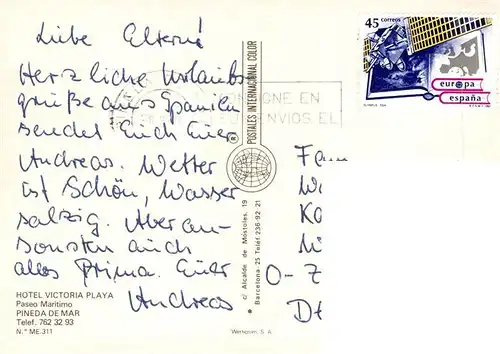 Liebe Eltern!
Herzliche Urlaubs-
grüße aus Spanien
sendet Euch Euer
Andreas. Wetter
ist Schön, Wasser
salzig. Aber an-
sonsten auch
alles Prima. Euer
Andreas
HOTEL VICTORIA PLAYA
Paseo Marítimo
PINEDA DE MAR
Telef. 762 32 93
N.º ME.311
POSTALES INTERNACIONAL COLOR
c/ Alcalde de Móstoles, 19
Barcelona-25 Teléf. 236-92 21
Werhorum, S. A.
CONSIGNE EN
ENVIOS, EL
45 correos
europa
españa
Fam
Kö
O-Z